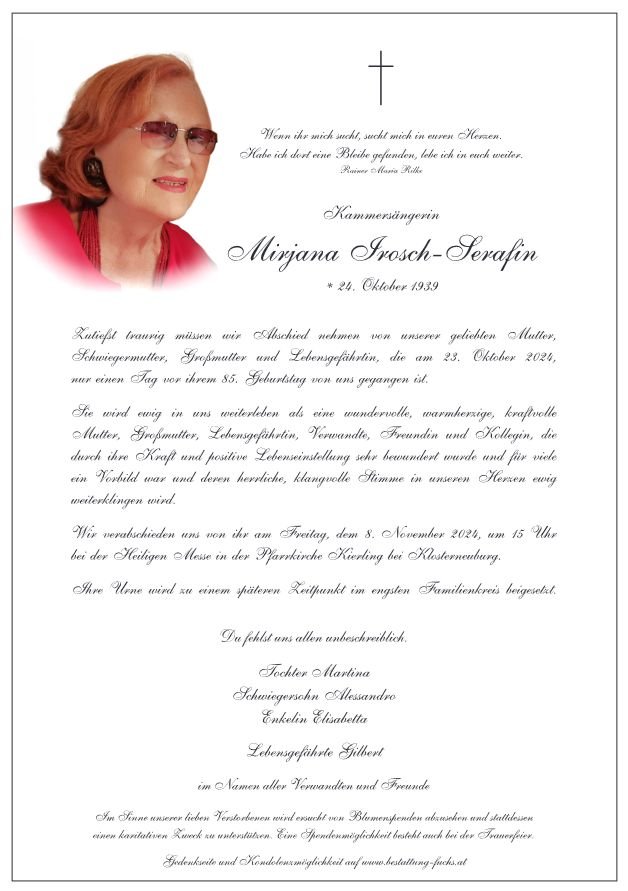 Wenn ihr mich sucht, sucht mich in euren Herzen.
Habe ich dort eine Bleibe gefunden, lebe ich in euch weiter.
Rainer Maria Rilke
Kammersängerin
Mirjana Irosch-Serafin
* 24. Oktober 1939
Zutiefst traurig müssen wir Abschied nehmen von unserer geliebten Mutter,
Schwiegermutter, Großmutter und Lebensgefährtin, die am 23. Oktober 2024,
nur einen Tag vor ihrem 85. Geburtstag von uns gegangen ist.
Sie wird ewig in uns weiterleben als eine wundervolle, warmherzige, kraftvolle
Mutter, Großmutter, Lebensgefährtin, Verwandte, Freundin und Kollegin, die
durch ihre Kraft und positive Lebenseinstellung sehr bewundert wurde und für viele
ein Vorbild war und deren herrliche, klangvolle Stimme in unseren Herzen ewig
weiterklingen wird.
Wir verabschieden uns von ihr am Freitag, dem 8. November 2024, um 15 Uhr
bei der Heiligen Messe in der Pfarrkirche Kierling bei Klosterneuburg.
Ihre Urne wird zu einem späteren Zeitpunkt im engsten Familienkreis beigesetzt.
Du fehlst uns allen unbeschreiblich.
Tochter Martina
Schwiegersohn Alessandro
Enkelin Elisabetta
Lebensgefährte Gilbert
im Namen aller Verwandten und Freunde
Im Sinne unserer lieben Verstorbenen wird ersucht von Blumenspenden abzusehen und stattdessen
einen karitativen Zweck zu unterstützen. Eine Spendenmöglichkeit besteht auch bei der Trauerfeier.
Gedenkseite und Kondolenzmöglichkeit auf www.bestattung-fuchs.at